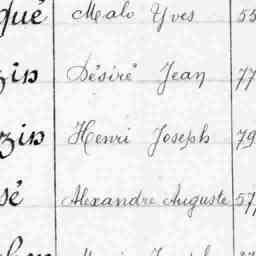 qué Malo Yves 55
zin Désiré Jean 77
zin Henri Joseph 79
sé Alexandre Auguste 57